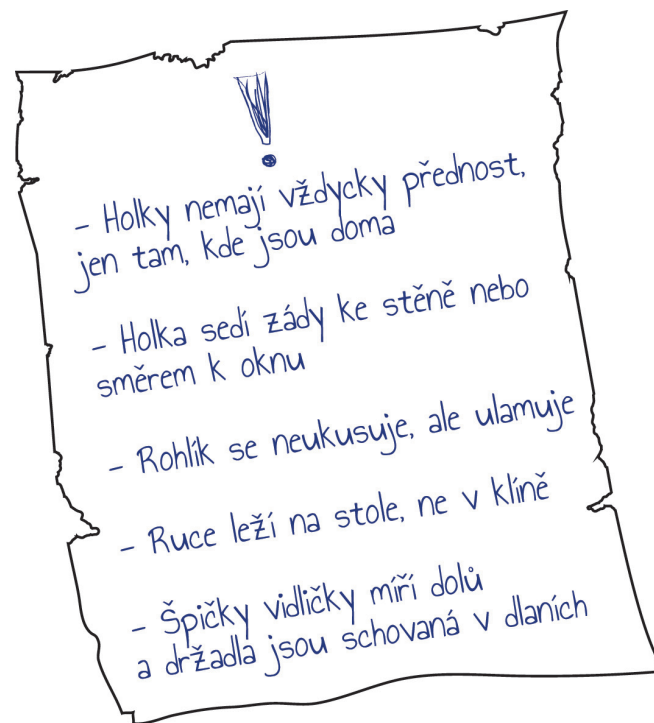 !
– Holky nemají vždycky přednost,
jen tam, kde jsou doma
– Holka sedí zády ke stěně nebo
směrem k oknu
– Rohlík se neukusuje, ale ulamuje
– Ruce leží na stole, ne v klíně
– Špičky vidličky míří dolů
a držadla jsou schovaná v dlaních